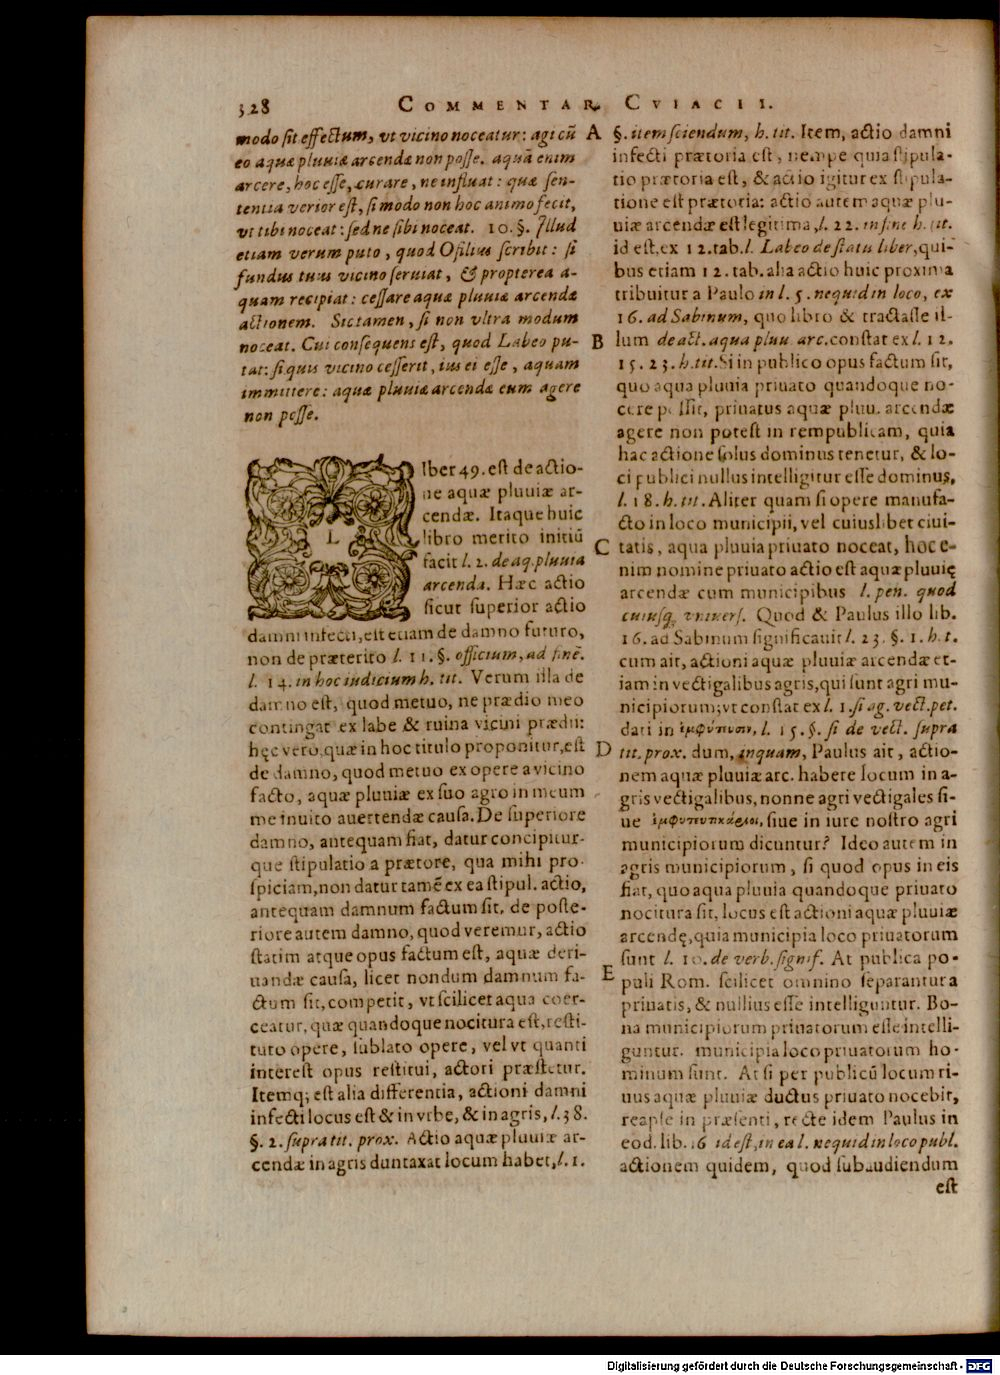 328 COMMENTAR. CVIACII I.
modo sit effectum, vt vicino noceatur: agi cũ
eo aquæ pluuiæ arcendæ non posse. aquã enim
arcere, hoc esse, curare, ne influat: quæ sen-
tentia verior est, si modo non hoc animo fecit,
vt tibi noceat: sed ne sibi noceat. 10. §. Illud
etiam verum puto, quod Ofilius scribit: si
fundus tuus vicino seruiat, & propterea a-
quam recipiat: cessare aquæ pluuiæ arcendæ
actionem. Sic tamen, si non vltra modum
noceat. Cui consequens est, quod Labeo pu-
tat: si quis vicino cesserit, ius ei esse, aquam
immittere: aquæ pluuiæ arcendæ eum agere
non posse.
LIber 49. est de actio-
ne aquæ pluuiæ ar-
cendæ. Itaque huic
libro merito initiũ
facit l. 2. de aq. pluuia
arcenda. Hæc actio
sicut superior actio
damni infecti, est etiam de damno futuro,
non de præterito l. 11. §. officium, ad finẽ.
l. 14. in hoc iudicium h. tit. Verum illa de
damno est, quod metuo, ne prædio meo
contingat ex labe & ruina vicini prædii:
hęc vero, quæ in hoc titulo proponitur, est
de damno, quod metuo ex opere a vicino
facto, aquæ pluuiæ ex suo agro in meum
me inuito auertendæ causa. De superiore
damno, antequam fiat, datur concipitur-
que stipulatio a prætore, qua mihi pro-
spiciam, non datur tamẽ ex ea stipul. actio,
antequam damnum factum sit, de poste-
riore autem damno, quod veremur, actio
statim atque opus factum est, aquæ deri-
uandæ causa, licet nondum damnum fa-
ctum sit, competit, vt scilicet aqua coer-
ceatur, quæ quandoque nocitura est, resti-
tuto opere, sublato opere, vel vt quanti
interest opus restitui, actori præstetur.
Itemq; est alia differentia, actioni damni
infecti locus est & in vrbe, & in agris, l. 38.
§. 2. supra tit. prox. Actio aquæ pluuiæ ar-
cendæ in agris duntaxat locum habet, l. 1.
A §. item sciendum, h. tit. Item, actio damni
infecti prætoria est, nempe quia stipula-
tio prætoria est, & actio igitur ex stipula-
tione est prætoria: actio autem aquæ plu-
uiæ arcendæ est legitima, l. 22. in fine h. tit.
id est, ex 12. tab. l. Labeo de statu liber, qui-
bus etiam 12. tab. alia actio huic proxima
tribuitur a Paulo in l. 5. ne quid in loco, ex
16. ad Sabinum, quo libro & tractasse il-
B lum de act. aqua pluu. arc. constat ex l. 12.
15. 23. h. tit. Si in publico opus factum sit,
quo aqua pluuia priuato quandoque no-
cere possit, priuatus aquæ pluu. arcendæ
agere non potest in rempublicam, quia
hac actione solus dominus tenetur, & lo-
ci publici nullus intelligitur esse dominus,
l. 18. h. tit. Aliter quam si opere manufa-
cto in loco municipii, vel cuiuslibet ciui-
C tatis, aqua pluuia priuato noceat, hoc e-
nim nomine priuato actio est aquæ pluuię
arcendæ cum municipibus l. pen. quod
cuiusq; vniuers. Quod & Paulus illo lib.
16. ad Sabinum significauit l. 23. §. 1. h. t.
cum ait, actioni aquæ pluuiæ arcendæ et-
iam in vectigalibus agris, qui sunt agri mu-
nicipiorum, vt constat ex l. 1. si ag. vect. pet.
dati in ἐμφύτευσιν, l. 15. §. si de vect. supra
D tit. prox. dum, inquam, Paulus ait, actio-
nem aquæ pluuiæ arc. habere locum in a-
gris vectigalibus, nonne agri vectigales si-
ue ἐμφυτευτικάριοι, siue in iure nostro agri
municipiorum dicuntur? Ideo autem in
agris municipiorum, si quod opus in eis
fiat, quo aqua pluuia quandoque priuato
nocitura sit, locus est actioni aquæ pluuiæ
arcendę, quia municipia loco priuatorum
sunt l. 10. de verb. signif. At publica po-
E puli Rom. scilicet omnino separantur a
priuatis, & nullius esse intelliguntur. Bo-
na municipiorum priuatorum esse intelli-
guntur. municipia loco priuatorum ho-
minum sunt. At si per publicũ locum ri-
uus aquæ pluuiæ ductus priuato nocebit,
reapse in præsenti, recte idem Paulus in
eod. lib. 16 id est, in ea l. ne quid in loco publ.
actionem quidem, quod subaudiendum
est
Digitalisierung gefördert durch die Deutsche Forschungsgemeinschaft - DFG